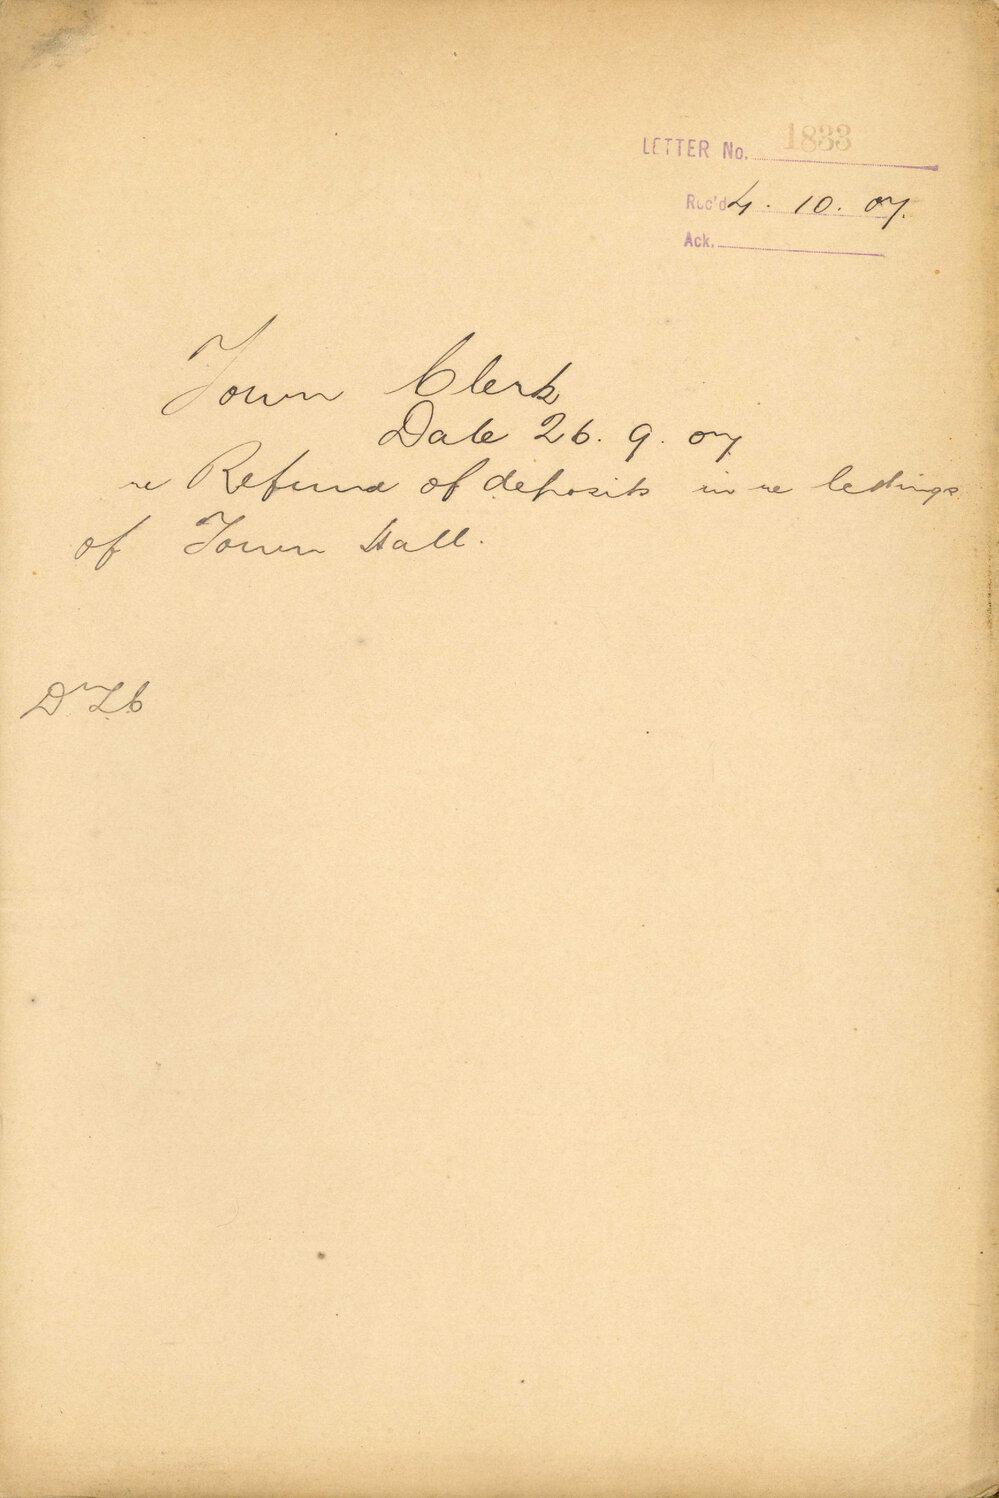 LETTER No. 1833
Rec'd 4. 10. 07.
Ack.
Town Clerk
Date 26. 9. 07
re Refund of deposits in re lettings
of Town Hall.